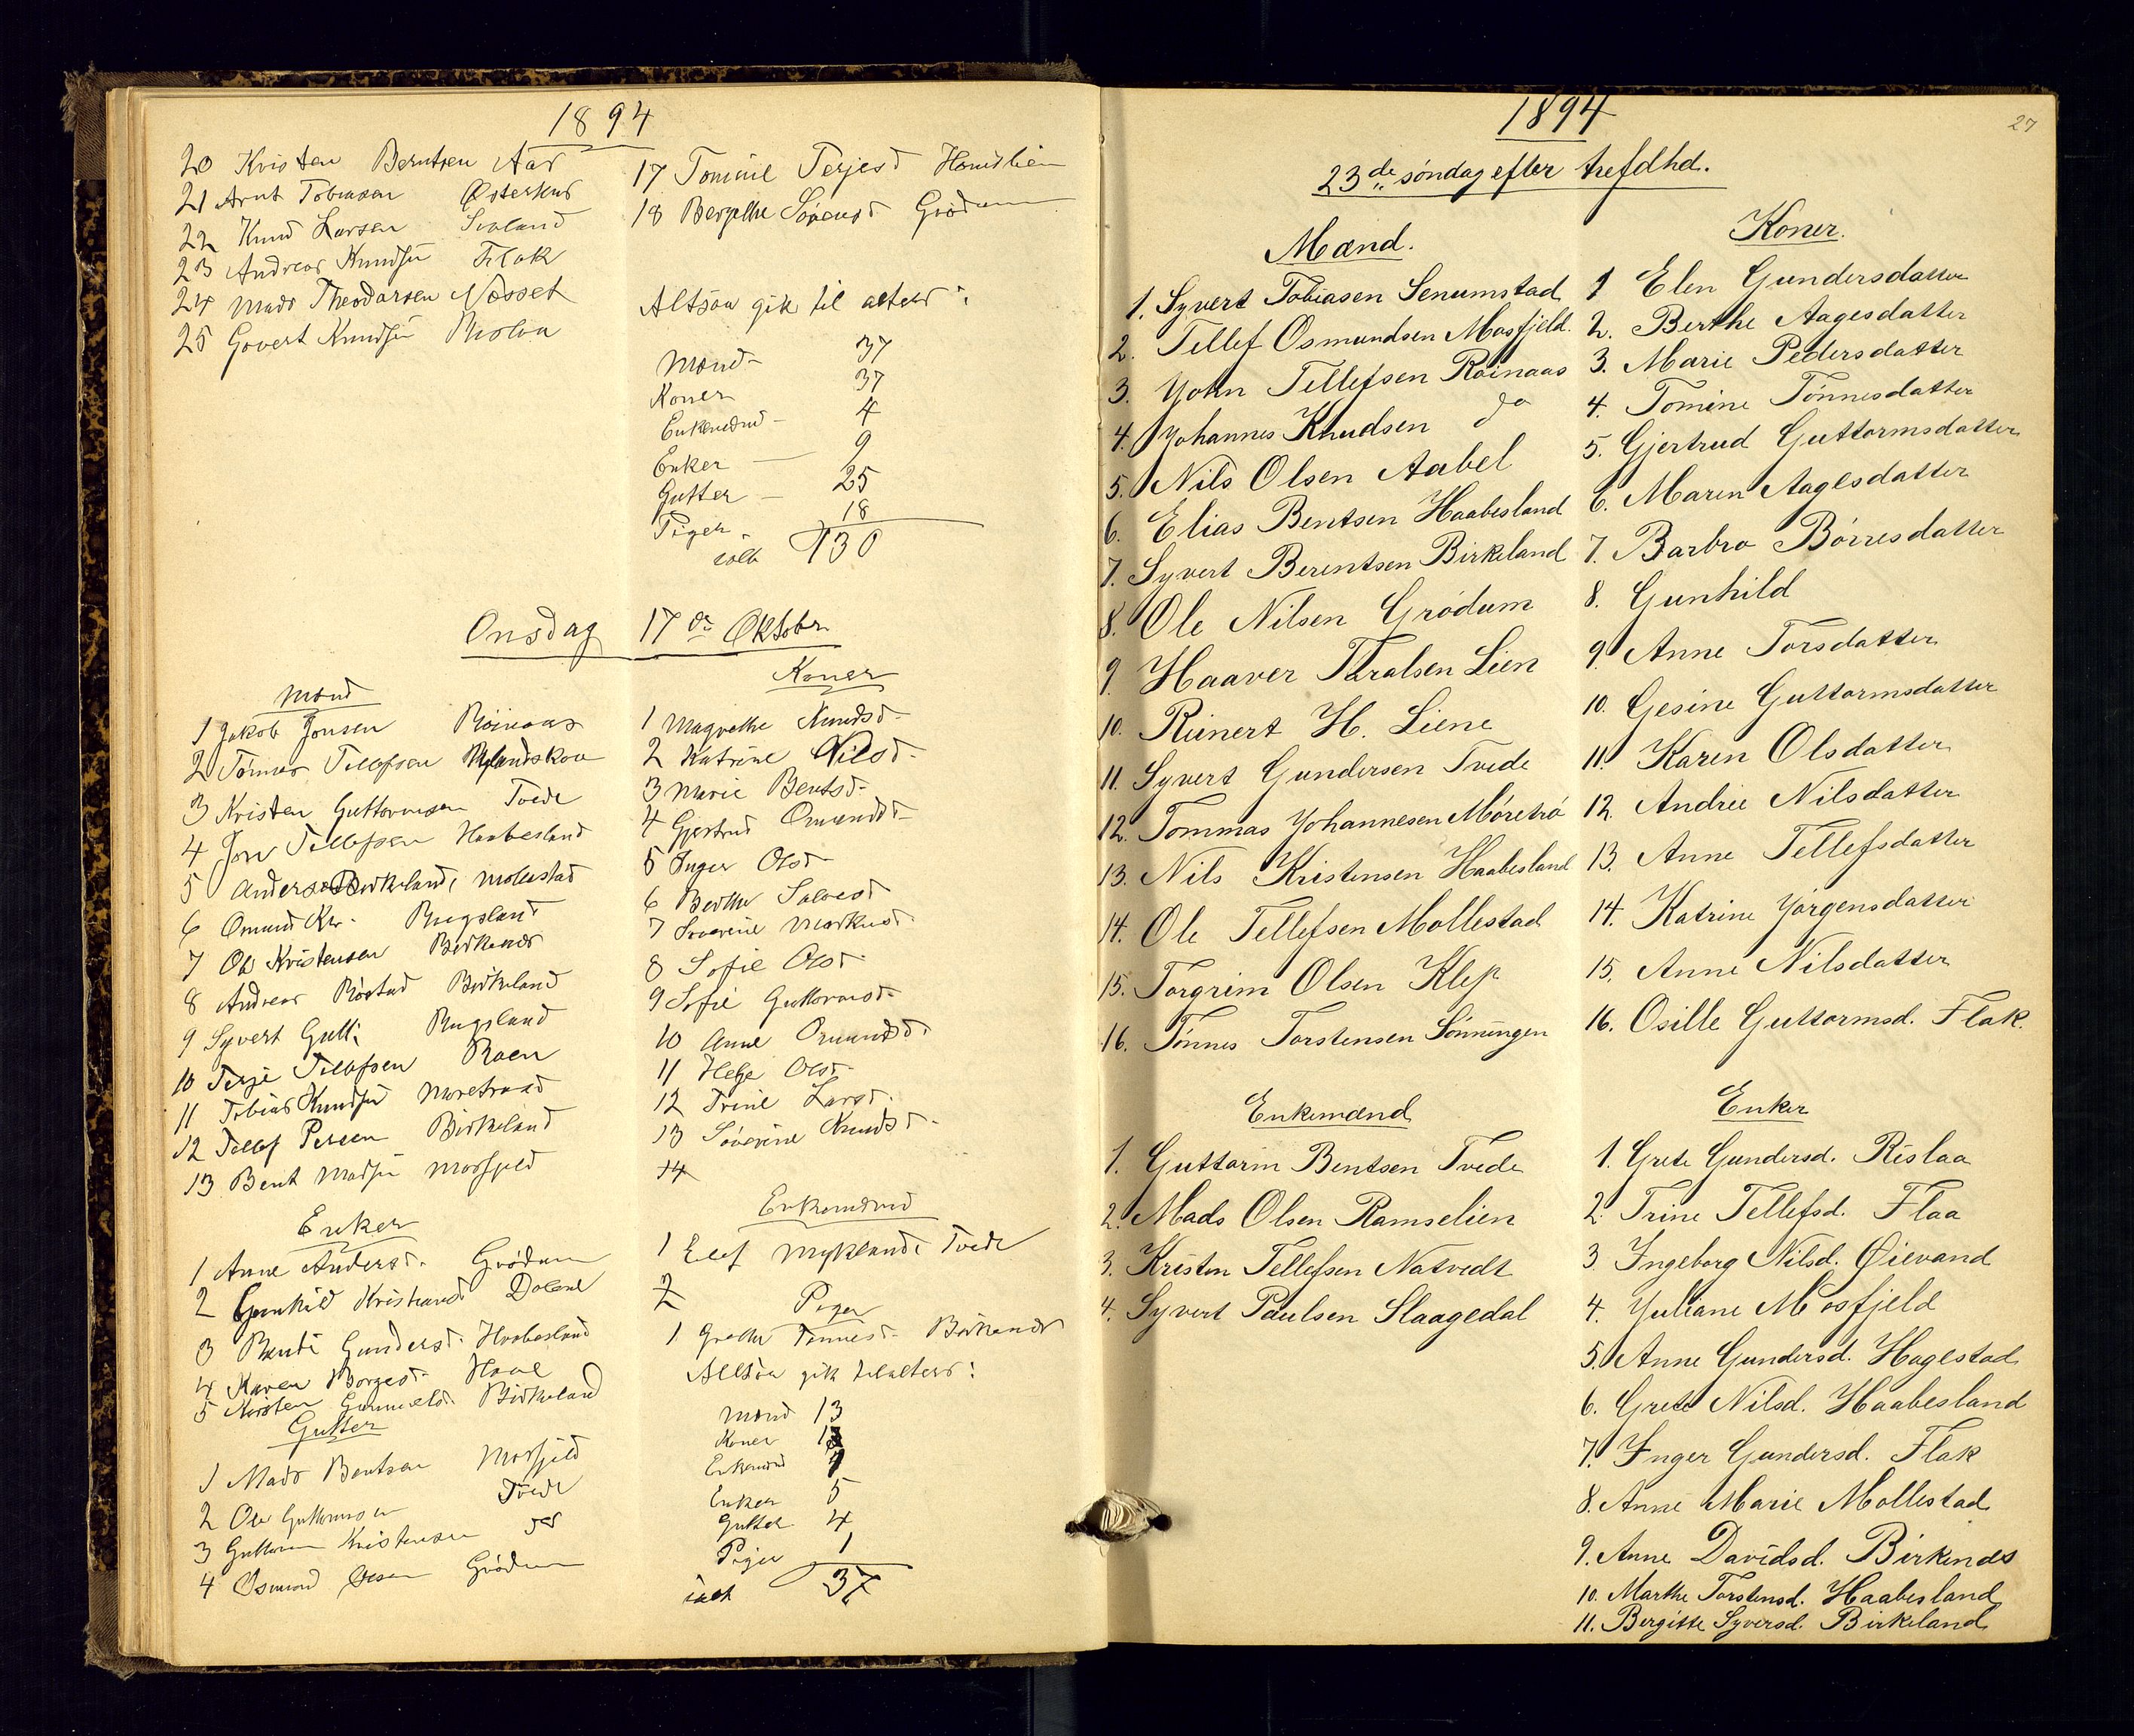 1894
20 Kristen Berntsen Aas
21 Arnt Tobiasen Østerhus
22 Knud Larsen Svaland
23 Andreas Knudsen Flak
24 Mads Theodorsen Næsset
25 Govert Knudsen Rislaa
17 Tomine Terjesd
18 Bergithe Sørensd Grödum
Altsaa gik til alters:
Mænd 37
Koner 37
Enkemænd 4
Enker 9
Gutter 25
Piger 18
ialt 130
Onsdag 17de Oktober
Mænd
1 Jakob Jonsen Röinaas
2 Tönnes Tellefsen
3 Kristen Guttormsen Tvede
4 Jon Tellefsen Haabesland
5 Anders Birkeland, Molestad
6 Omund Kr. Rugsland
7 Ole Kristensen Birkenes
8 Andreas Röstad Birkeland
9 Syvert Gutt. Rugsland
10 Terje Tellefsen Roen
11 Tobias Knudsen
12 Tellef Persen Birkeland
13 Bent Madsen Mosfjeld
Koner
1 Magrethe Knudsd.
2 Katrine Nilsd.
3 Marie Bentsd.
4 Gjertrud Omundsd.
5 Inger Olsd.
6 Berthe Salvesd
7 Severine Markusd.
8 Sofie Olsd.
9 Sofie Guttormsd.
10 Anne Omundsd.
11 Helje Olsd.
12 Trine Larsd.
13 Söverine Knudsd.
14
Enker
1 Anne Andersd. Grödum
2 Gunhild Kristiansd. Dolene
3 Berte Gundersd. Haabesland
4 Karen Börgesd.
5 Kirsten Gunnulsd. Birkeland
Gutter
1 Mads Bentsen Mosfjeld
2 Ole Guttormsen Tvede
3 Guttorm Kristensen do
4 Osmund Olsen Grödum
Enkemænd
1 Elef Myklands Tvede
2
Piger
1 Grethe Tönnesd. Birkenes
Altsaa gik til alters:
Mænd 13
Koner 13
Enkemænd 1
Enker 5
Gutter 4
Piger 1
ialt 37
27
1894
23de søndag efter trefdhd.
Mænd.
1. Syvert Tobiasen Senumstad
2. Tellef Osmundsen Mosfjeld.
3. Yohn Tellefsen Röinaas
4. Yohannes Knudsen do
5. Nils Olsen Aabel
6. Elias Bentsen Haabesland
7. Syvert Berentsen Birkeland
8. Ole Nilsen Grödum
9. Haaver Taralsen Lien
10. Reinert H. Liene
11. Syvert Gundersen Tvede
12. Tommas Yohannesen Möretrö
13. Nils Kristensen Haabesland
14. Ole Tellefsen Mollestad
15. Torgrim Olsen Klep
16. Tönnes Torstensen Sönningen
Koner.
1 Elen Gundersdatter
2. Berthe Aagesdatter
3. Marie Pedersdatter
4. Tomine Tönnesdatter
5. Gjertrud Guttormsdatter
6. Maren Aagesdatter
7. Barbro Börresdatter
8. Gunhild
9. Anne Torsdatter
10. Gesine Guttormsdatter
11. Karen Olsdatter
12. Andrie Nilsdatter
13. Anne Tellefsdatter
14. Katrine Yörgensdatter
15. Anne Nilsdatter
16. Osille Guttormsd. Flak.
Enkemænd
1. Guttorm Bentsen Tvede
2. Mads Olsen Ramselien
3. Kristen Tellefsen Natvedt
4. Syvert Paulsen Slaagedal
Enker
1. Grete Gundersd. Rislaa
2. Trine Tellefsd. Flaa
3. Yngeborg Nilsd. Øievand
4. Yuliane Mosfjeld
5. Anne Gundersd. Hagestad
6. Grete Nilsd. Haabesland
7. Ynger Gundersd. Flak
8. Anne Marie Mollestad
9. Anne Davidsd. Birkenes
10. Marthe Torstensd. Haabesland
11. Bergitte Syversd. Birkeland